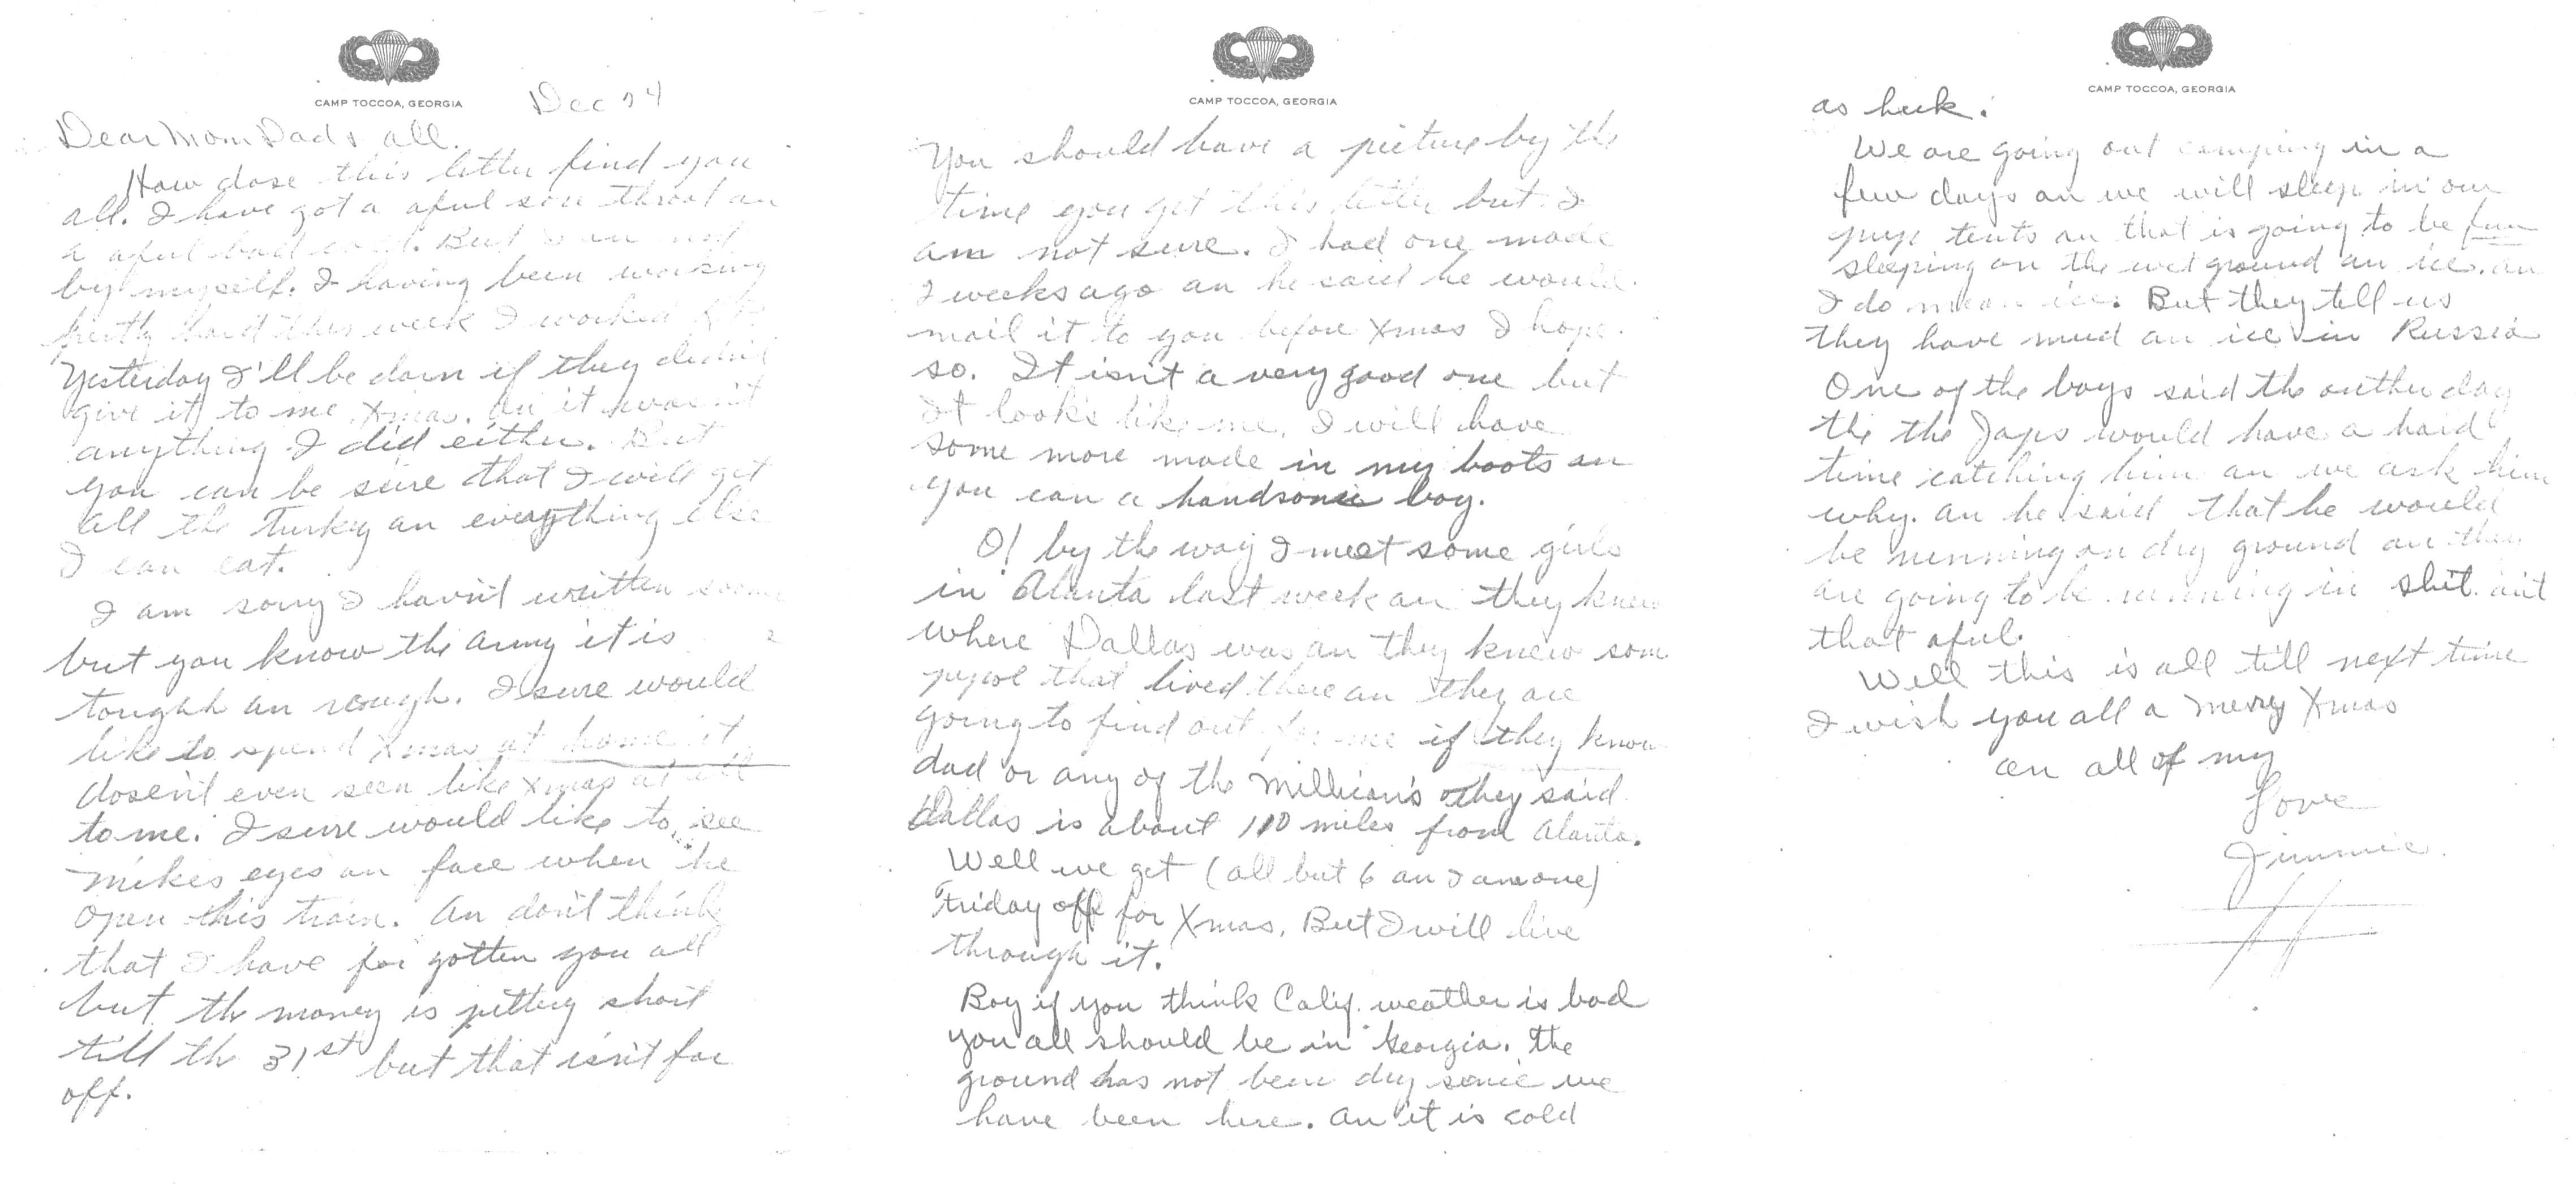 CAMP TOCCOA, GEORGIA
Dec 24
Dear Mom Dad & all.
How dose this letter find you
all. I have got a aful sore throat an
a aful bad cold. But I am not
by myself. I having been working
pretty hard this week I worked
Yesterday I'll be darn if they didn't
give it to me Xmas. an it wasn't
anything I did either. But
you can be sure that I will get
all the Turkey an everything else
I can eat.
I am sorry I havn't written
but you know the army it is
toughh an rough. I sure would
like to spend Xmas at home it
dosen't even seen like Xmas at all
to me. I sure would like to see
mikes eyes an face when he
open this train. An don't think
that I have for gotten you all
but th money is pitty short
till th 31st but that isn't far
off.
CAMP TOCCOA, GEORGIA
You should have a picture by the
time you get this letter but I
am not sure. I had one made
2 weeks ago an he said he would
mail it to you before Xmas I hope
so. It isn't a very good one but
It looks like me. I will have
some more made in my boots an
you can a handsome boy.
O! by the way I meet some girls
in Alanta last week an they knew
where Dallas was an they knew som
that lived there an they are
going to find out for me if they know
dad or any of the Millican's they said
Dallas is about 110 miles from Alanta.
Well we get (all but 6 an I am one)
Friday off for Xmas. But I will live
through it.
Boy if you think Calif. weather is bad
you all should be in Georgia. The
ground has not been dry senic we
have been here. An it is cold
CAMP TOCCOA, GEORGIA
as heck.
We are going out camping in a
few days an we will sleep in our
pup tents an that is going to be fun
sleeping on the wet ground an ice. an
I do mean ice. But they tell us
they have mud an ice in Russia
One of the boys said the outher day
the the Japs would have a hard
time catching him an we ask him
why. an he said that he would
be running on dry ground an they
are going to be running in shit. aint
that aful.
Well this is all till next time
I wish you all a merry Xmas
an all of my
Love
Jimmie.